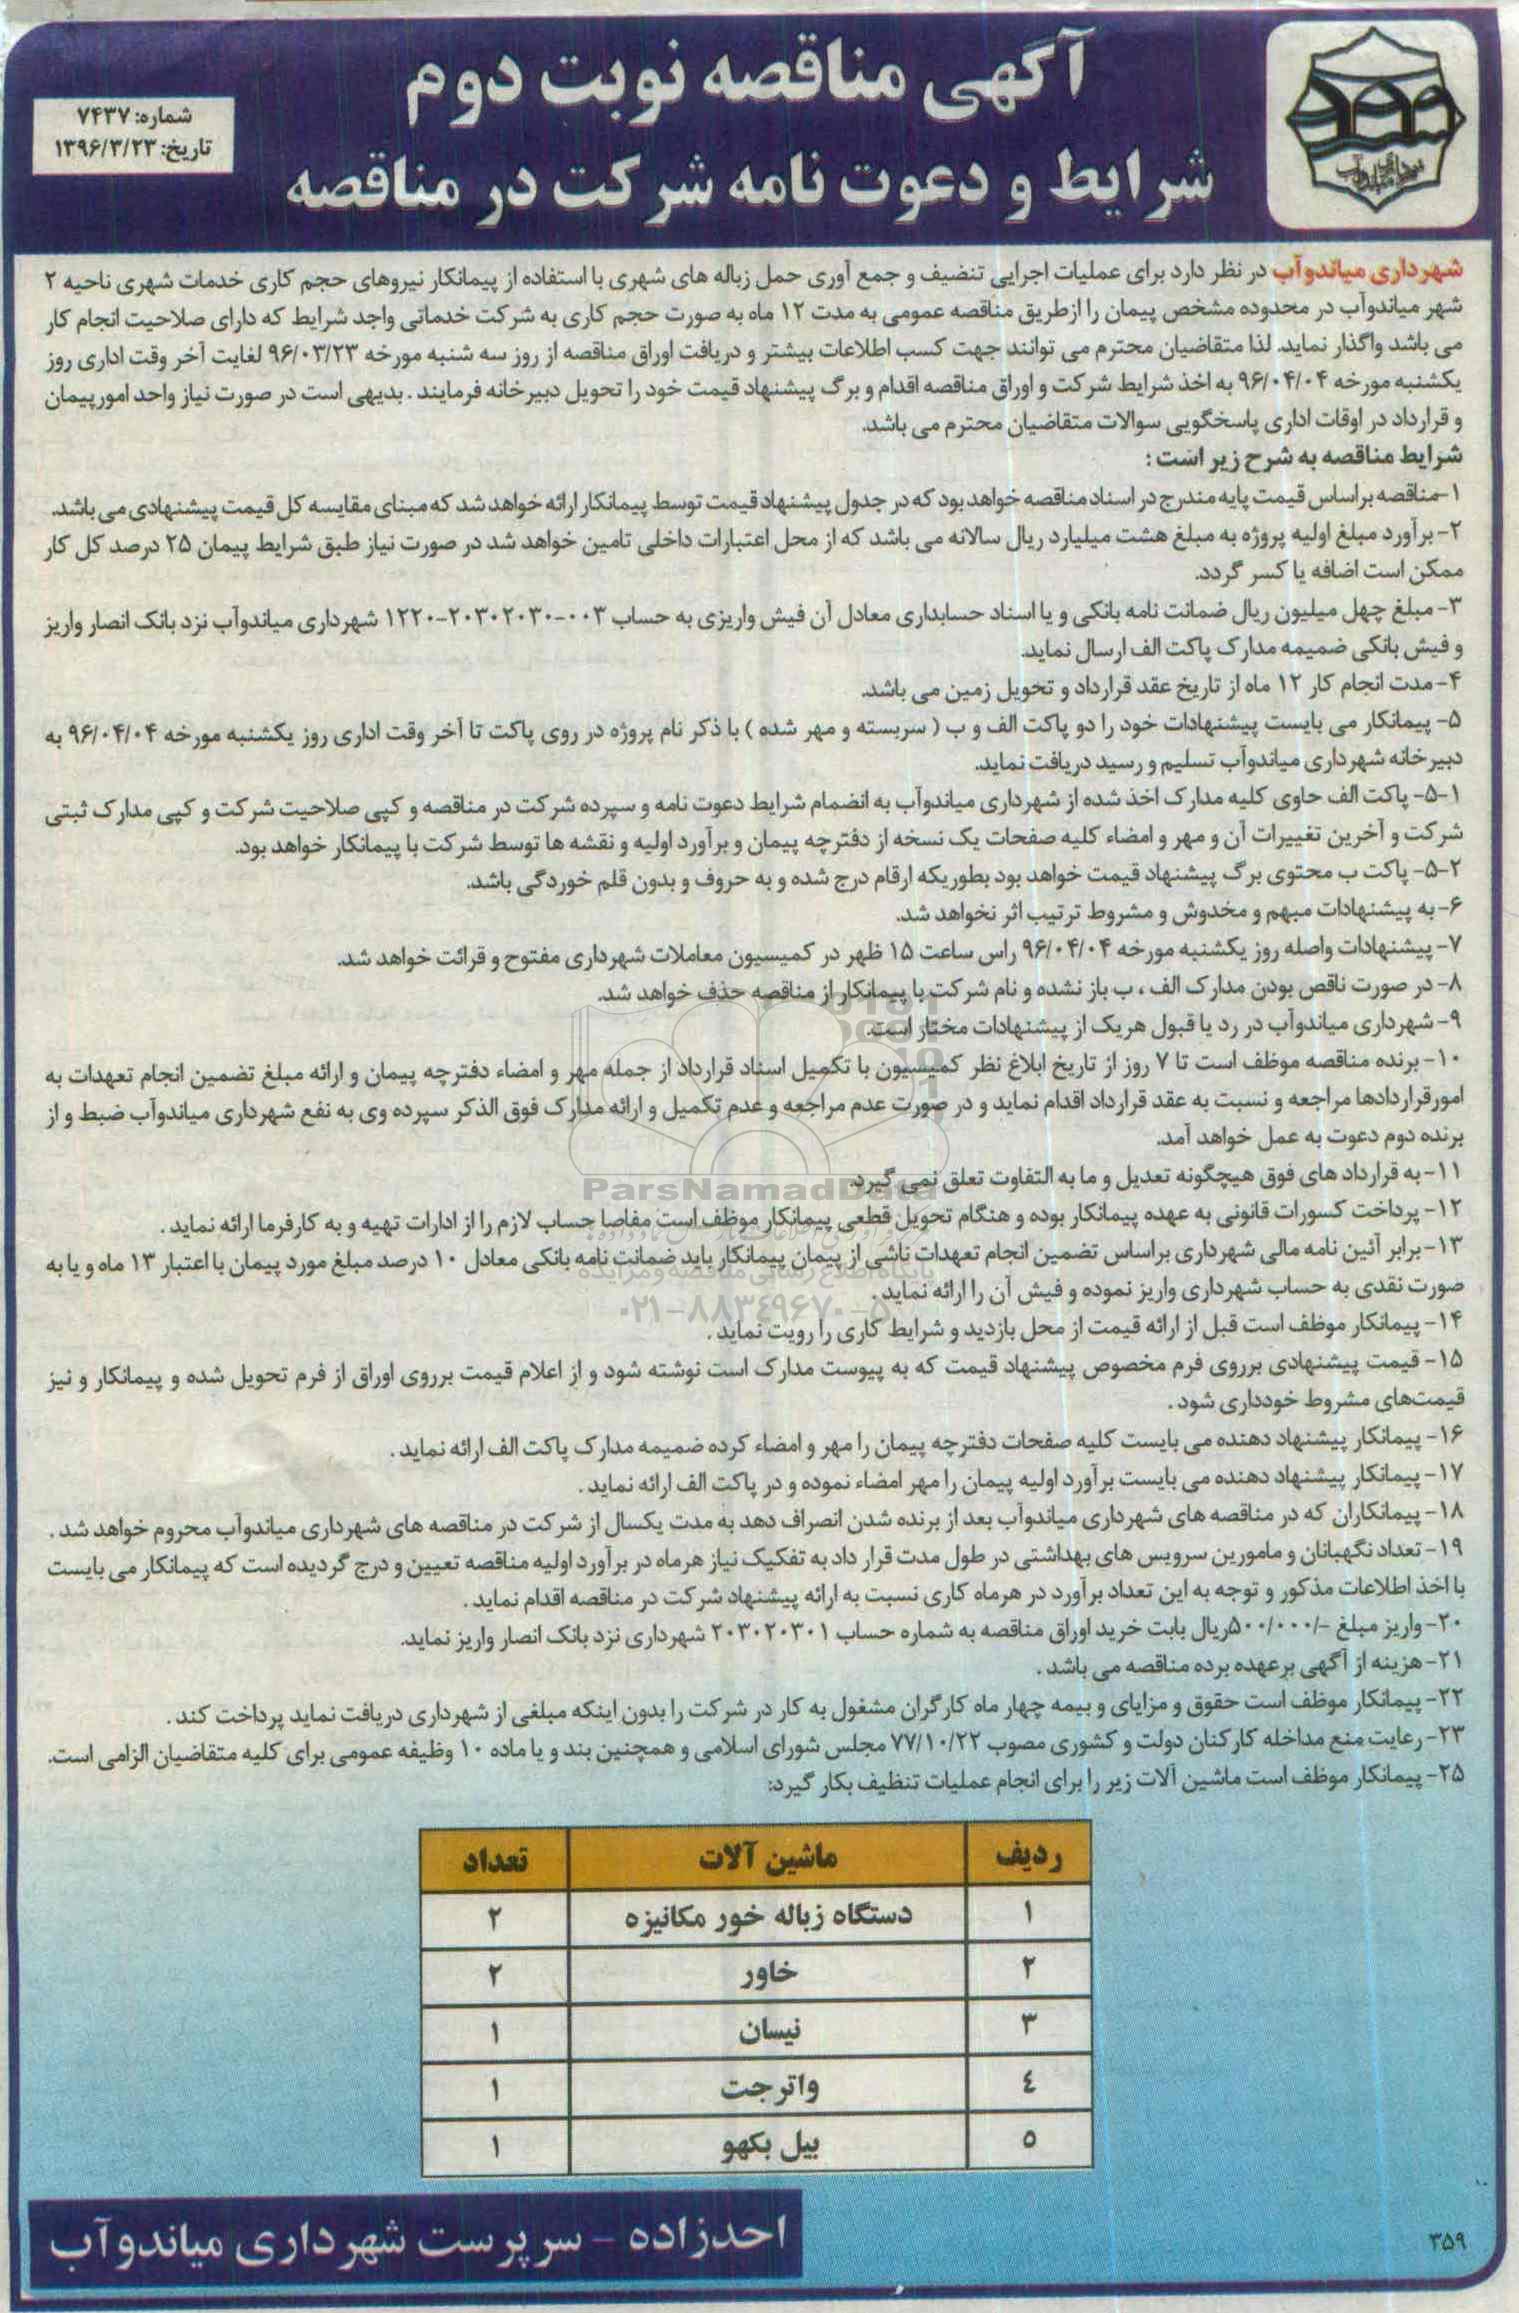 آگهی مناقصه نوبت دوم
شرایط و دعوت نامه شرکت در مناقصه
شماره: ۷۴۳۷
تاریخ: ۱۳۹۶/۳/۲۳
شهرداری میاندوآب
شهرداری میاندوآب در نظر دارد برای عملیات اجرایی تنضیف و جمع آوری حمل زباله های شهری با استفاده از پیمانکار نیروهای حجم کاری خدمات شهری ناحیه ۲
شهر میاندوآب در محدوده مشخص پیمان را ازطریق مناقصه عمومی به مدت ۱۲ ماه به صورت حجم کاری به شرکت خدماتی واجد شرایط که دارای صلاحیت انجام کار
می باشد واگذار نماید. لذا متقاضیان محترم می توانند جهت کسب اطلاعات بیشتر و دریافت اوراق مناقصه از روز سه شنبه مورخه ۹۶/۰۳/۲۳ لغایت آخر وقت اداری روز
یکشنبه مورخه ۹۶/۰۴/۰۴ به اخذ شرایط شرکت و اوراق مناقصه اقدام و برگ پیشنهاد قیمت خود را تحویل دبیرخانه فرمایند . بدیهی است در صورت نیاز واحد امورپیمان
و قرارداد در اوقات اداری پاسخگویی سوالات متقاضیان محترم می باشد.
شرایط مناقصه به شرح زیر است :
۱-مناقصه براساس قیمت پایه مندرج در اسناد مناقصه خواهد بود که در جدول پیشنهاد قیمت توسط پیمانکار ارائه خواهد شد که مبنای مقایسه کل قیمت پیشنهادی می باشد.
۲- برآورد مبلغ اولیه پروژه به مبلغ هشت میلیارد ریال سالانه می باشد که از محل اعتبارات داخلی تامین خواهد شد در صورت نیاز طبق شرایط پیمان ۲۵ درصد کل کار
ممکن است اضافه یا کسر گردد.
۳- مبلغ چهل میلیون ریال ضمانت نامه بانکی و یا اسناد حسابداری معادل آن فیش واریزی به حساب ۰۰۳-۲۰۳۰۲۰۳۰-۱۲۲۰ شهرداری میاندوآب نزد بانک انصار واریز
و فیش بانکی ضمیمه مدارک پاکت الف ارسال نماید.
۴-مدت انجام کار ۱۲ ماه از تاریخ عقد قرارداد و تحویل زمین می باشد.
۵- پیمانکار می بایست پیشنهادات خود را دو پاکت الف و ب ( سربسته و مهر شده ) با ذکر نام پروژه در روی پاکت تا آخر وقت اداری روز یکشنبه مورخه ۹۶/۰۴/۰۴ به
دبیرخانه شهرداری میاندوآب تسلیم و رسید دریافت نماید.
۵-۱- پاکت الف حاوی کلیه مدارک اخذ شده از شهرداری میاندوآب به انضمام شرایط دعوت نامه و سپرده شرکت در مناقصه و کپی صلاحیت شرکت و کپی مدارک ثبتی
شرکت و آخرین تغییرات آن و مهر و امضاء کلیه صفحات یک نسخه از دفترچه پیمان و برآورد اولیه و نقشه ها توسط شرکت با پیمانکار خواهد بود.
۵-۲- پاکت ب محتوی برگ پیشنهاد قیمت خواهد بود بطوریکه ارقام درج شده و به حروف و بدون قلم خوردگی باشد.
۶-به پیشنهادات مبهم و مخدوش و مشروط ترتیب اثر نخواهد شد.
۷- پیشنهادات واصله روز یکشنبه مورخه ۹۶/۰۴/۰۴ راس ساعت ۱۵ ظهر در کمیسیون معاملات شهرداری مفتوح و قرائت خواهد شد.
۸- در صورت ناقص بودن مدارک الف ، ب باز نشده و نام شرکت با پیمانکار از مناقصه حذف خواهد شد.
۹- شهرداری میاندوآب در رد یا قبول هریک از پیشنهادات مختار است.
۱۰- برنده مناقصه موظف است تا ۷ روز از تاریخ ابلاغ نظر کمیسیون با تکمیل اسناد قرارداد از جمله مهر و امضاء دفترچه پیمان و ارائه مبلغ تضمین انجام تعهدات به
امورقراردادها مراجعه و نسبت به عقد قرارداد اقدام نماید و در صورت عدم مراجعه و عدم تکمیل و ارائه مدارک فوق الذکر سپرده وی به نفع شهرداری میاندوآب ضبط و از
برنده دوم دعوت به عمل خواهد آمد.
۱۱-به قرارداد های فوق هیچگونه تعدیل و ما به التفاوت تعلق نمی گیرد.
ParsNamadData
۱۲- پرداخت کسورات قانونی به عهده پیمانکار بوده و هنگام تحویل قطعی پیمانکار موظف است مفاصا حساب لازم را از ادارات تهیه و به کارفرما ارائه نماید .
۱۳-برابر آئین نامه مالی شهرداری براساس تضمین انجام تعهدات ناشی از پیمان پیمانکار باید ضمانت نامه بانکی معادل ۱۰ درصد مبلغ مورد پیمان با اعتبار ۱۳ ماه و یا به
پایگاه اطلاع رسانی مناقصه و مزایده
صورت نقدی به حساب شهرداری واریز نموده و فیش آن را ارائه نماید .
۰۲۱-۸۸۳۴۹۶۷۰-۵
۱۴- پیمانکار موظف است قبل از ارائه قیمت از محل بازدید و شرایط کاری را رویت نماید .
۱۵- قیمت پیشنهادی برروی فرم مخصوص پیشنهاد قیمت که به پیوست مدارک است نوشته شود و از اعلام قیمت برروی اوراق از فرم تحویل شده و پیمانکار و نیز
قیمت‌های مشروط خودداری شود .
۱۶- پیمانکار پیشنهاد دهنده می بایست کلیه صفحات دفترچه پیمان را مهر و امضاء کرده ضمیمه مدارک پاکت الف ارائه نماید .
۱۷- پیمانکار پیشنهاد دهنده می بایست برآورد اولیه پیمان را مهر امضاء نموده و در پاکت الف ارائه نماید .
۱۸- پیمانکاران که در مناقصه های شهرداری میاندوآب بعد از برنده شدن انصراف دهد به مدت یکسال از شرکت در مناقصه های شهرداری میاندوآب محروم خواهد شد .
۱۹- تعداد نگهبانان و مامورین سرویس های بهداشتی در طول مدت قرار داد به تفکیک نیاز هرماه در برآورد اولیه مناقصه تعیین و درج گردیده است که پیمانکار می بایست
با اخذ اطلاعات مذکور و توجه به این تعداد برآورد در هرماه کاری نسبت به ارائه پیشنهاد شرکت در مناقصه اقدام نماید .
۲۰- واریز مبلغ -/۵۰۰/۰۰۰ریال بابت خرید اوراق مناقصه به شماره حساب ۲۰۳۰۲۰۳۰۱ شهرداری نزد بانک انصار واریز نماید.
۲۱-هزینه از آگهی برعهده برده مناقصه می باشد .
۲۲- پیمانکار موظف است حقوق و مزایای و بیمه چهار ماه کارگران مشغول به کار در شرکت را بدون اینکه مبلغی از شهرداری دریافت نماید پرداخت کند .
۲۳- رعایت منع مداخله کارکنان دولت و کشوری مصوب ۷۷/۱۰/۲۲ مجلس شورای اسلامی و همچنین بند و یا ماده ۱۰ وظیفه عمومی برای کلیه متقاضیان الزامی است.
۲۵- پیمانکار موظف است ماشین آلات زیر را برای انجام عملیات تنظیف بکار گیرد:
ردیف ماشین آلات تعداد
۱ دستگاه زباله خور مکانیزه ۲
۲ خاور ۲
۳ نیسان ۱
٤ واترجت ۱
۵ بیل بکهو ۱
احدزاده - سرپرست شهرداری میاندوآب
۳۵۹